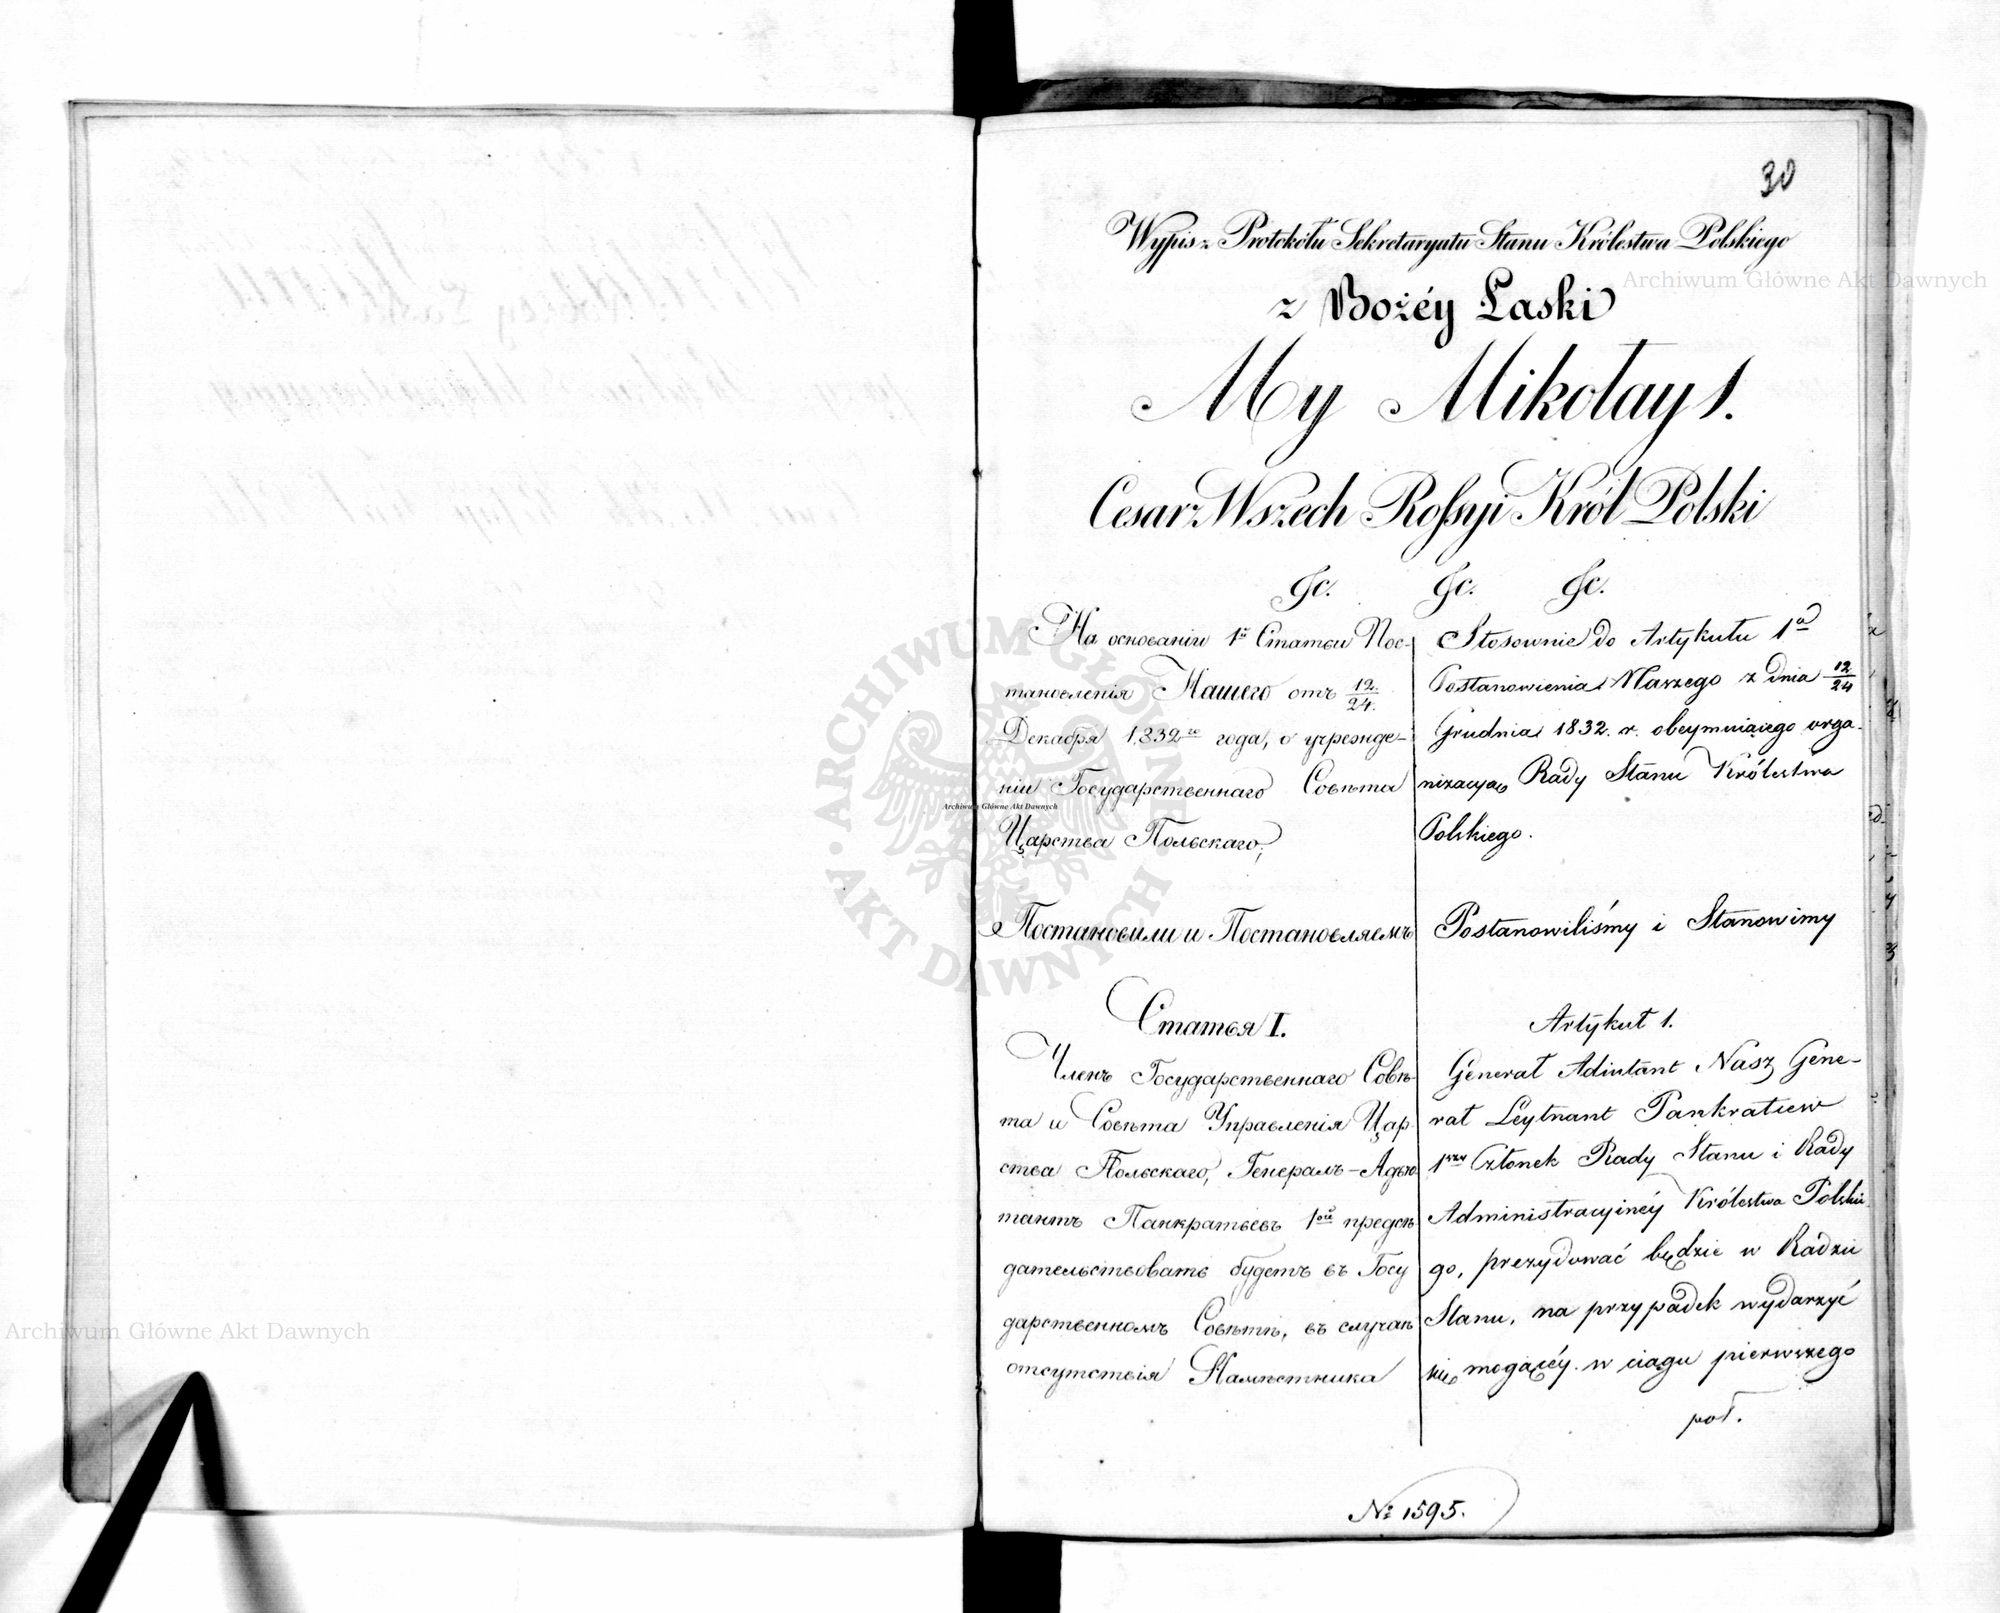 30
Wypis z Protokółu Sekretaryatu Stanu Królestwa Polskiego
z Bożéy Łaski
My Mikołay 1.
Cesarz Wszech Rossyi Król Polski
&c. &c. &c.
На основаніи 1й Статьи Пос-
тановленія Нашего отъ 12/24.
Декабря 1832го года, о учрежде-
ніи Государственнаго Совѣта
Царства Польскаго;
Постановили и Постановляемъ
Статья I.
Членъ Государственнаго Совѣ-
та и Совѣта Управленія Цар-
ства Польскаго, Генералъ-Адъю
тантъ Панкратьевъ 1ой предсѣ
дательствовать будетъ въ Госу
дарственномъ Совѣтѣ, въ случаѣ
отсутствія Намѣстника
Stosownie do Artykułu 1o
Postanowienia Naszego z dnia 12/24
Grudnia 1832. r. obeymuiącego orga-
nizacyą Rady Stanu Królestwa
Polskiego.
Postanowiliśmy i Stanowimy
Artykuł 1.
Generał Adiutant Nasz Gene-
rał Leytnant Pankratiew
1szy Członek Rady Stanu i Rady
Administracyinéy Królestwa Polskie
go, prezydować będzie w Radzie
Stanu, na przypadek wydarzyć
się mogącéy w ciągu pierwszego
poł.
№ 1595.
Archiwum Główne Akt Dawnych
Archiwum Główne Akt Dawnych
Archiwum Główne Akt Dawnych
ARCHIWUM GŁÓWNE · AKT DAWNYCH ·